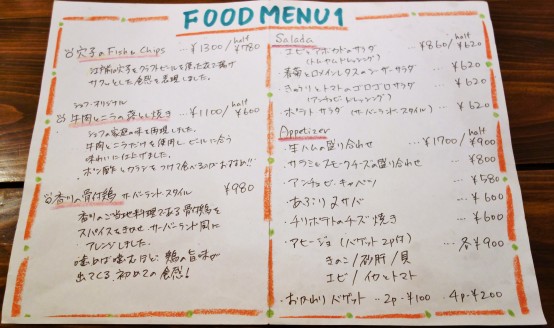 FOOD MENU 1
穴子のFish & Chips ... ¥1300 / half ¥780
江戸前穴子をクラフトビールを使った衣で揚げ
サクッとした食感を表現しました。
シェフ・オリジナル
牛肉とニラの落とし焼き ... ¥1100 / half ¥600
シェフの家庭の味を再現しました。
牛肉とニラだけを使用し、ビールに合う
味わいに仕上げました。
ポン酢とカラシをつけて食べるのがおすすめ!!
香川の骨付鶏 サーバーラント スタイル ¥980
香川のご当地料理である骨付鶏を
スパイスをきかせ サーバーラント風に
アレンジしました。
噛めば噛むほど、鶏の旨味が
出てくる初めての食感!
Salada
エビとアボカドのサラダ ... ¥860 / half ¥620
(トムヤムドレッシング)
・春菊とロメインレタスのシーザーサラダ ... ¥620
・きゅうりとトマトのゴロゴロサラダ ... ¥620
(アンチョビドレッシング)
・ポテトサラダ (サーバーラント スタイル) ... ¥620
Appetizer
・生ハムの盛り合わせ ... ¥1700 / half ¥900
・サラミとスモークチーズの盛り合わせ ... ¥800
・アンチョビ・キャベツ ... ¥580
・あぶり〆サバ ... ¥600
・チリポテトのチーズ焼き ... ¥600
・アヒージョ (バゲット2p付) ... 各¥900
きのこ / 砂肝 / 貝
エビ / イカとトマト
・おかわりバゲット ... 2p・¥100 4p・¥200